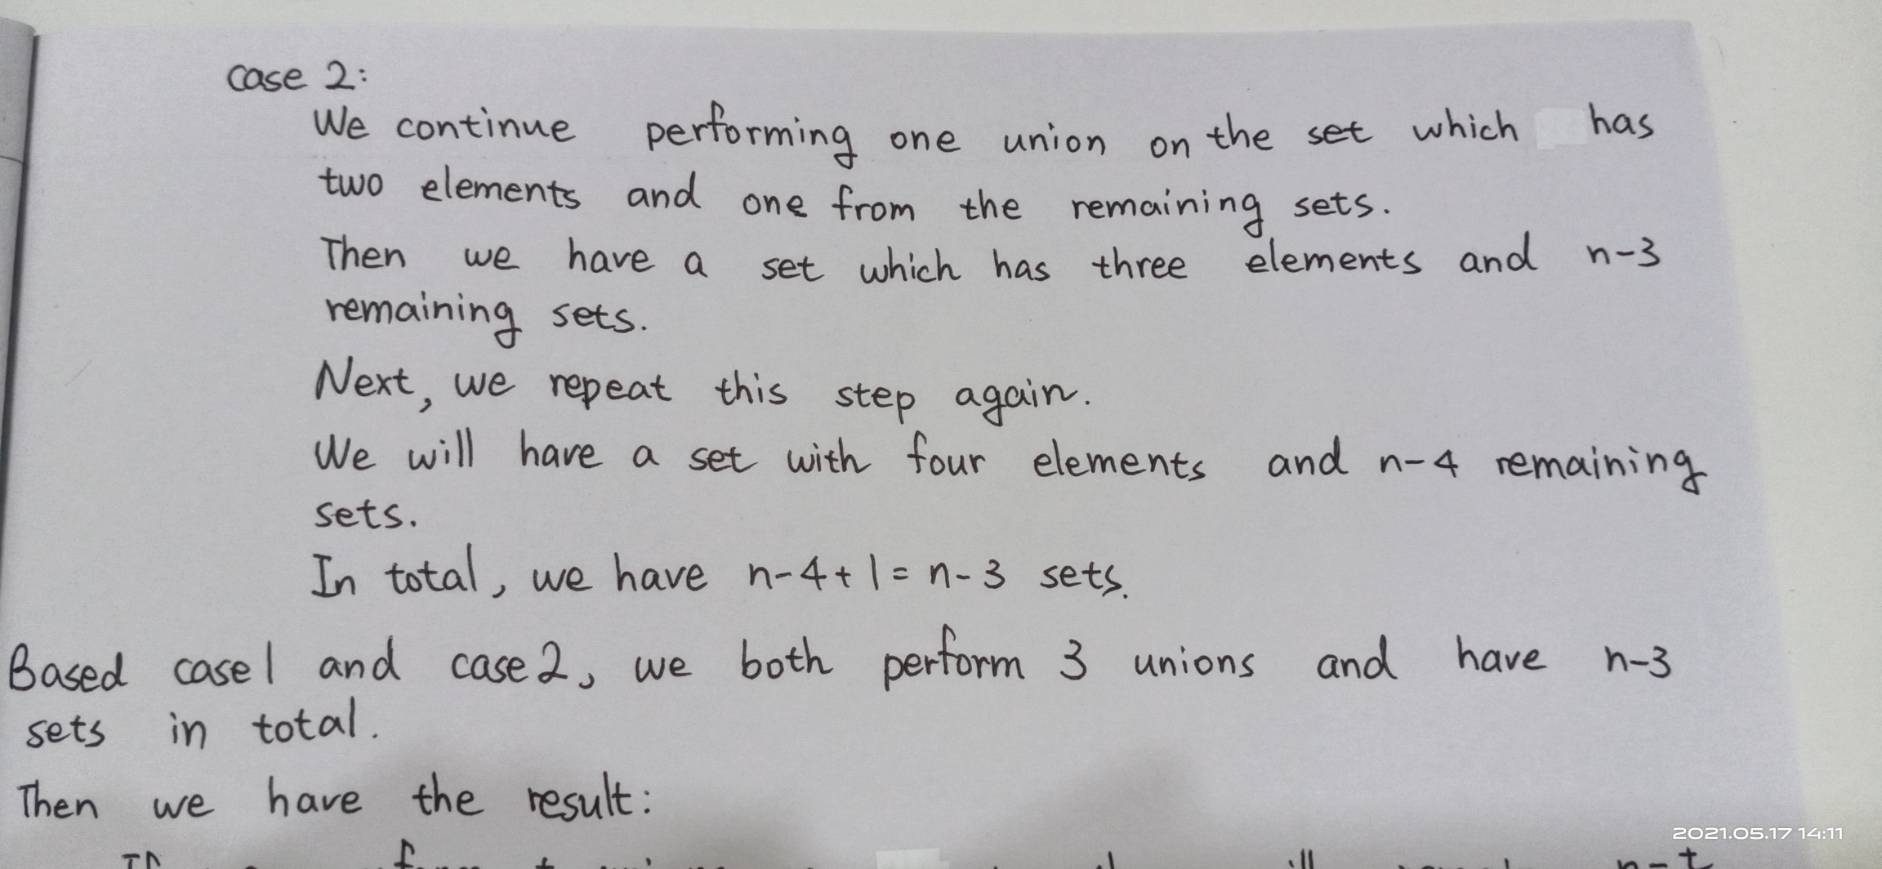 case 2:
We continue performing one union on the set which has
two elements and one from the remaining sets.
Then we have a set which has three elements and n-3
remaining sets.
Next, we repeat this step again.
We will have a set with four elements and n-4 remaining
sets.
In total, we have n-4+1=n-3 sets.
Based case1 and case2, we both perform 3 unions and have n-3
sets in total.
Then we have the result:
2021.05.17 14:11
n-t